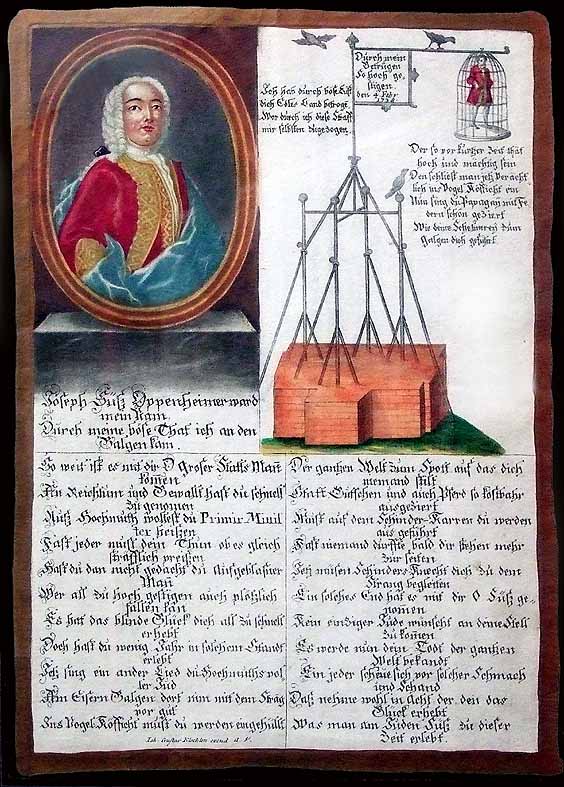 Durch mein
Betrügen
so hoch ge,
stigen.
den 4 Febr
Ich hab durch böse List
Wor durch ich diese Straff
mir selbsten zugezogen.
Der so vor kurtzer Zeit that
hoch und mächtig sein
Den schliest man jetz veracht
lich ins Vogel Kefficht ein
Nun sing du Papagey mit Fe
dern schön geziert
Wie deine Schelmerey zum
Galgen dich geführt
Joseph Süß Oppenheimer ward
mein Nam.
Durch meine böse That ich an den
Galgen kam.
So weit ist es mit dir O großer Staats Man
komen
An Reichtum und Gewallt hast du schnell
zu genomen
Auß Hochmuth woltest du Primir Minis
ter heißen
Fast jeder must dein Thun ob es gleich
sträfflich preißen
Hast du dan nicht gedacht du Aufgeblasner
Man
Wer all zu hoch gestigen auch plötzlich
fallen kan
Es hat das blinde Glück dich all zu schnell
erhebt
Doch hast du wenig Jahr in solchem Stand
erlebt
Ich sing ein ander Lied du Hochmuths vol
ler Jud
Am Eisern Galgen dort nim mit dem
vor gut
Ins Vogel Kefficht must du werden eingehüllt
Der gantzen Welt zum Spott auf das dich
niemand stilt
Statt Gutschen und auch Pferd so kostbahr
ausgeziert
Must auf dem Schinder Karren du werden
aus geführt
Fast niemand dürffte bald dir stehen mehr
zur seiten
Jetz müsen Schinders Knecht dich zu dem
Strang begleiten
Ein solches End hat es mit dir O Süß ge-
nomen
Kein eintziger Jude wünscht an deine Stell
zu komen
Es werde nun dein Todt der gantzen
Welt bekandt
Ein jeder scheue sich vor solcher Schmach
und Schand
Daß nehme wohl in acht der den das
Glück erhebt
Was man am Juden Süß zu dieser
Zeit erlebt.